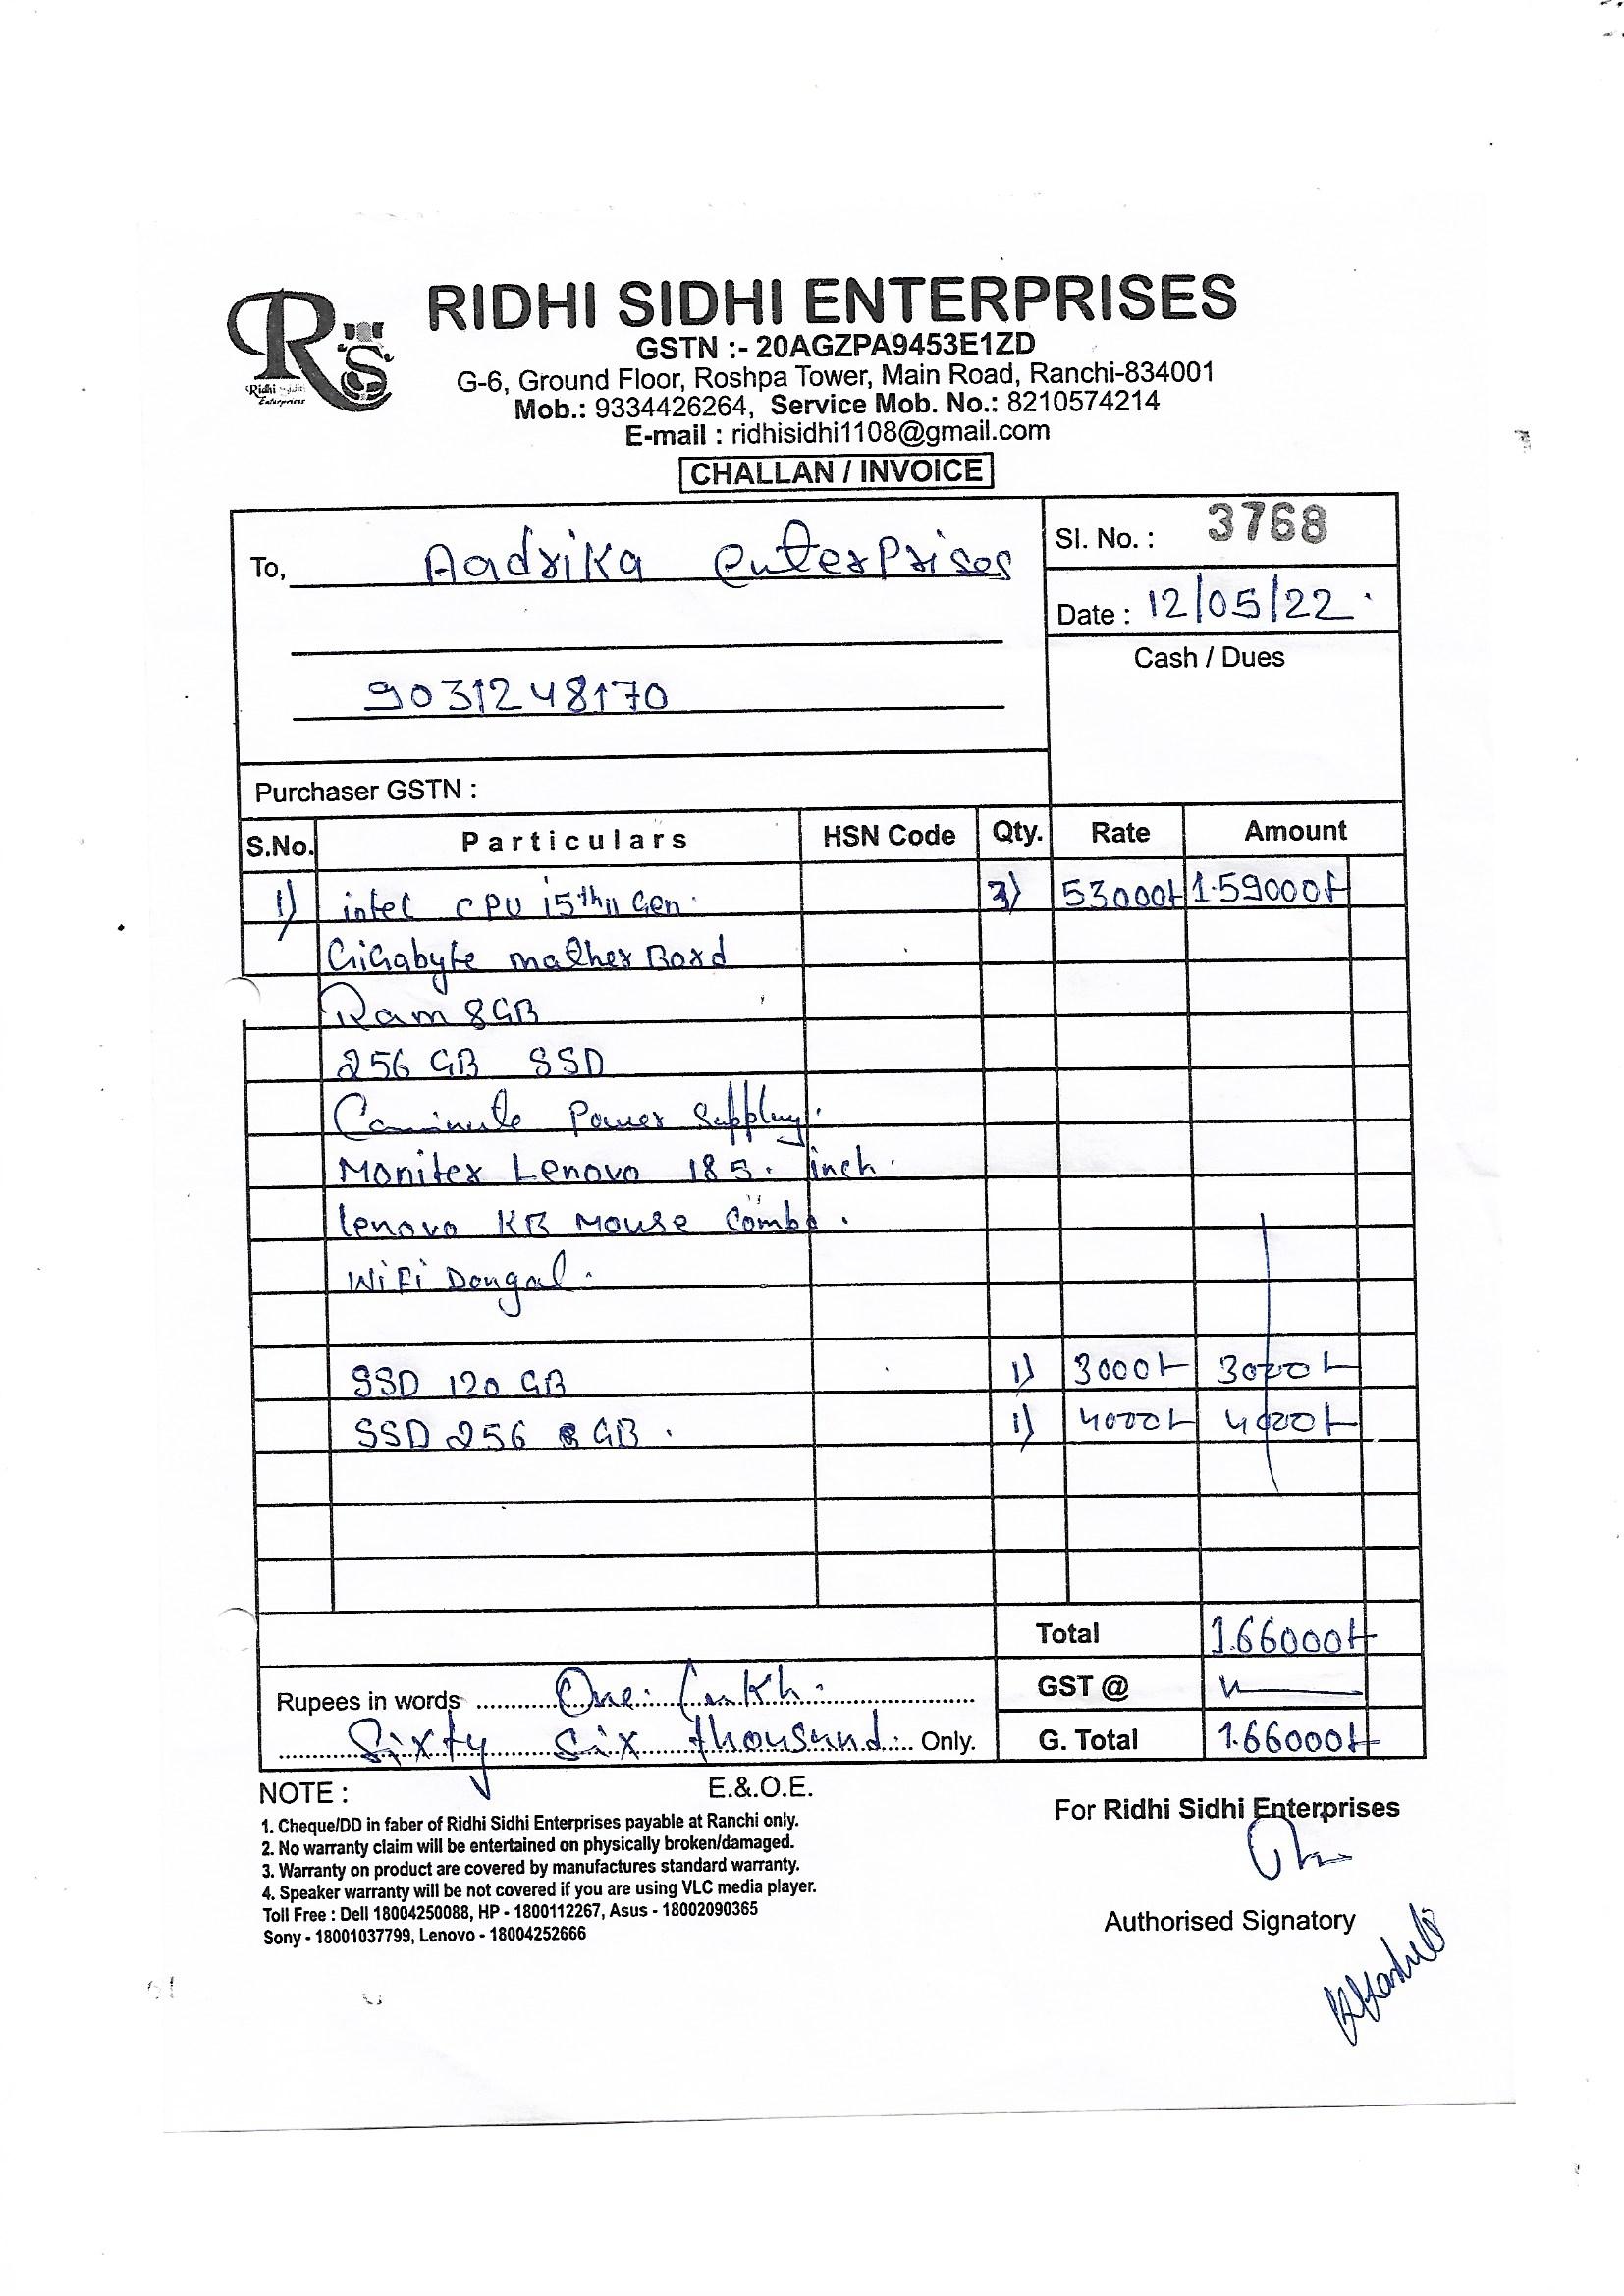 RIDHI SIDHI ENTERPRISES
GSTN :- 20AGZPA9453E1ZD
G-6, Ground Floor, Roshpa Tower, Main Road, Ranchi-834001
Mob.: 9334426264, Service Mob. No.: 8210574214
E-mail : ridhisidhi1108@gmail.com
Rs
Ridhi
Enterprises
CHALLAN / INVOICE
To, Aadrika enterprises
Sl. No. : 3768
Date : 12/05/22
9031248170
Cash / Dues
Purchaser GSTN :
S.No. Particulars HSN Code Qty. Rate Amount
1) intel CPU i5 th 11 Gen. 3) 53000/- 1.59000/-
GiGabyte mather Bord
Ram 8GB
256 GB SSD
Power Supplay.
Moniter Lenovo 18 5. inch.
lenovo KB Mouse Combo.
WiFi Dongal.
SSD 120 GB 1) 3000/- 3000/-
SSD 256 GB. 1) 4000/- 4000/-
Total 1.66000/-
Rupees in words One Lakh.
GST @
Sixty six thousand Only.
G. Total 1.66000/-
NOTE : E.&.O.E.
1. Cheque/DD in faber of Ridhi Sidhi Enterprises payable at Ranchi only.
2. No warranty claim will be entertained on physically broken/damaged.
3. Warranty on product are covered by manufactures standard warranty.
4. Speaker warranty will be not covered if you are using VLC media player.
Toll Free : Dell 18004250088, HP - 1800112267, Asus - 18002090365
Sony - 18001037799, Lenovo - 18004252666
For Ridhi Sidhi Enterprises
Authorised Signatory